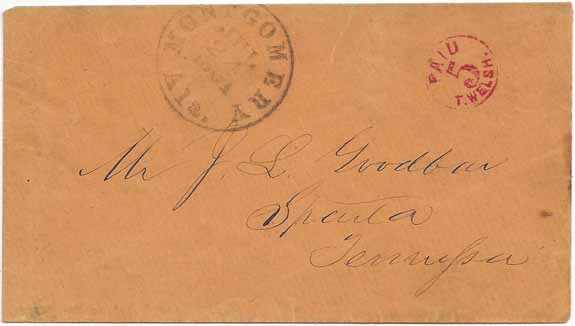 MONTGOMERY Ala.
JUL
PAID
5
T. WELSH.
Mr J. L. Goodbar
Sparta
Tennessee